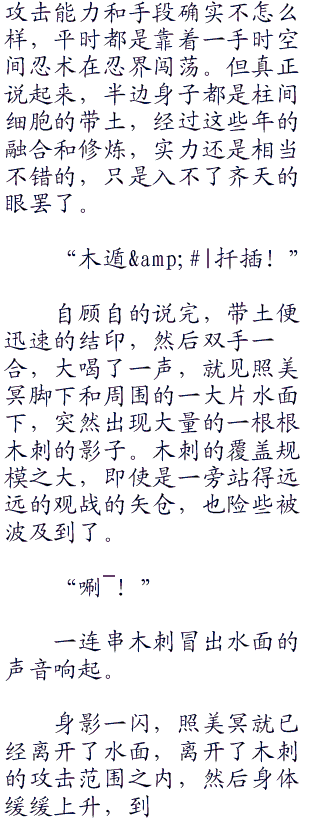 攻击能力和手段确实不怎么
样，平时都是靠着一手时空
间忍术在忍界闯荡。但真正
说起来，半边身子都是柱间
细胞的带土，经过这些年的
融合和修炼，实力还是相当
不错的，只是入不了齐天的
眼罢了。
“木遁&amp;#|扦插！”
自顾自的说完，带土便
迅速的结印，然后双手一
合，大喝了一声，就见照美
冥脚下和周围的一大片水面
下，突然出现大量的一根根
木刺的影子。木刺的覆盖规
模之大，即使是一旁站得远
远的观战的矢仓，也险些被
波及到了。
“唰¯！”
一连串木刺冒出水面的
声音响起。
身影一闪，照美冥就已
经离开了水面，离开了木刺
的攻击范围之内，然后身体
缓缓上升，到